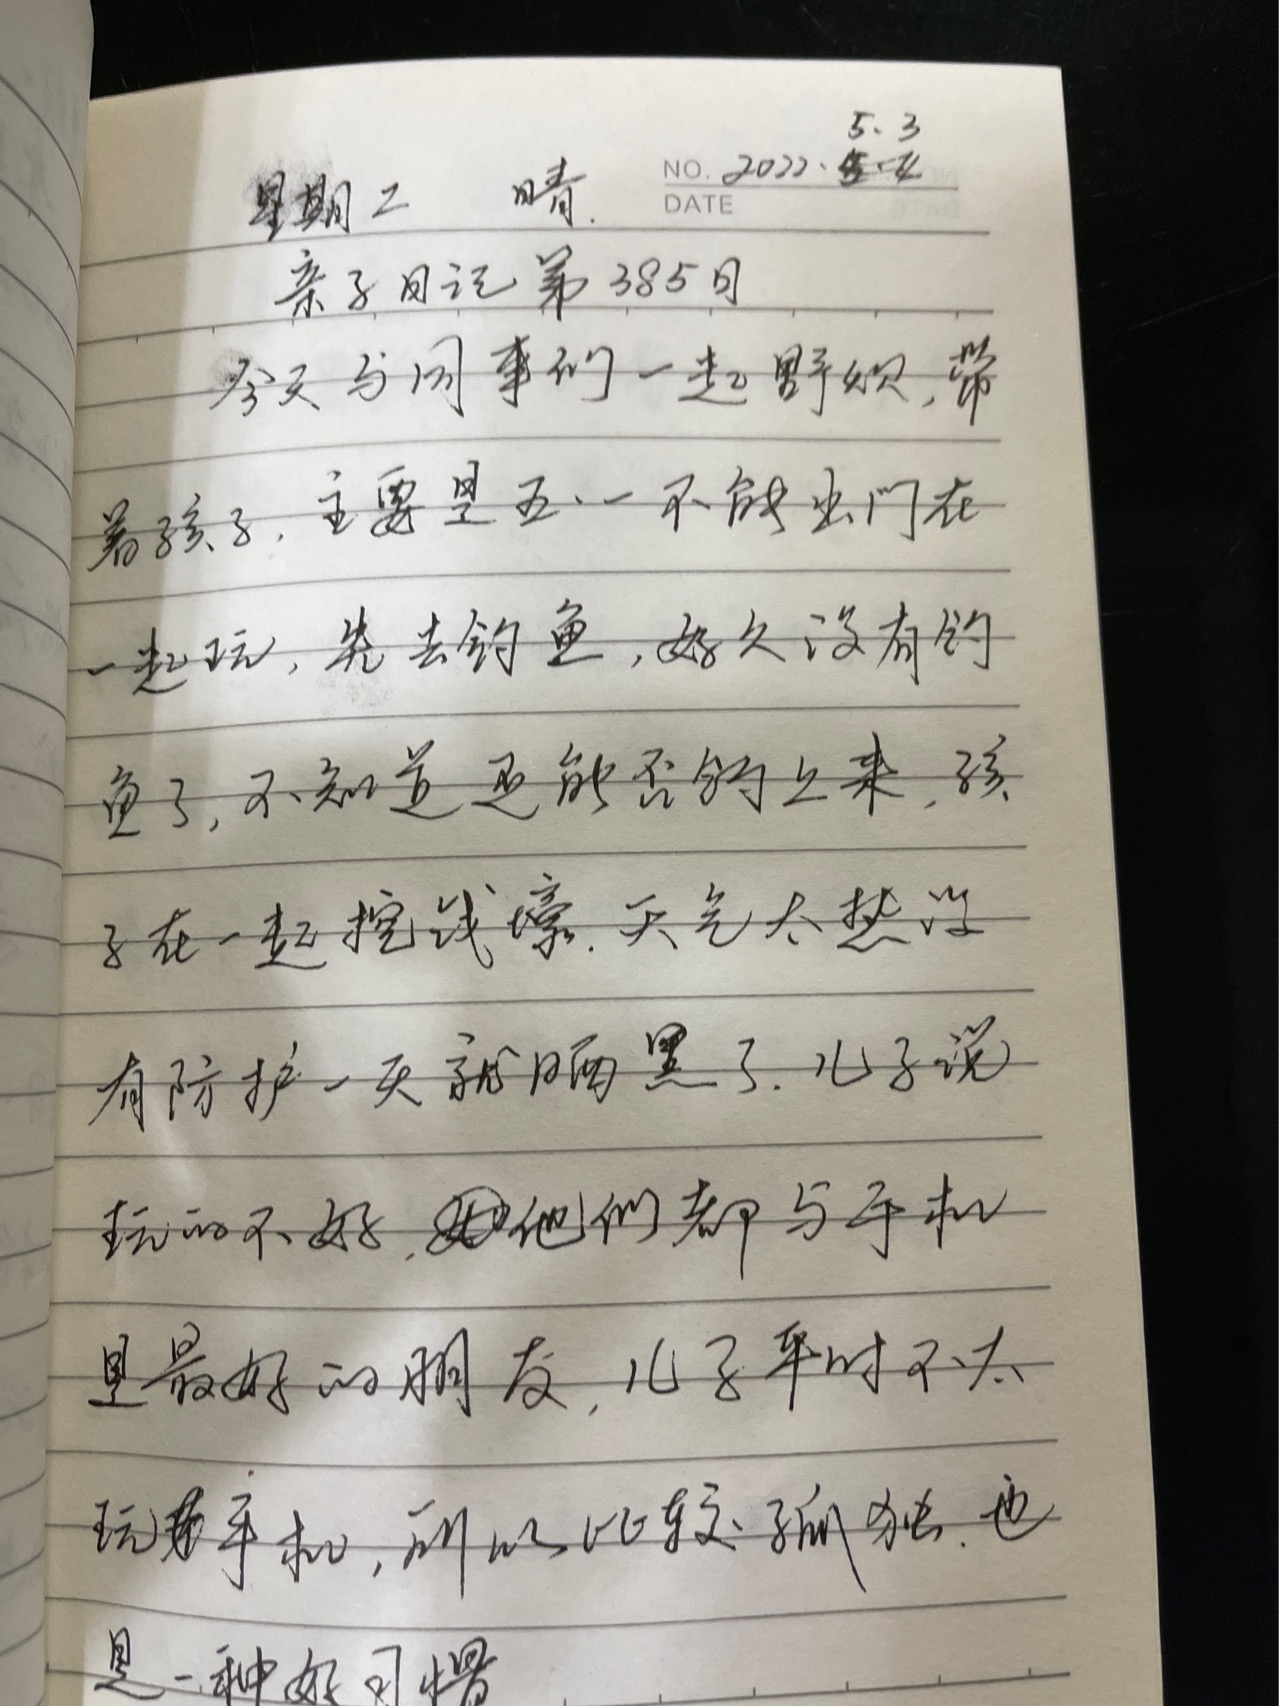 5.3
NO. 2022.
DATE
星期二 晴.
亲子日记第385日
今天与同事们一起野炊,带
着孩子,主要是五·一不能出门在
一起玩,先去钓鱼,好久没有钓
鱼了,不知道还能否钓上来,孩
子在一起挖战壕.天气太热没
有防护一天就晒黑了.儿子说
玩的不好,他们都与手机
是最好的朋友,儿子平时不太
玩手机,所以比较孤独.也
是一种好习惯